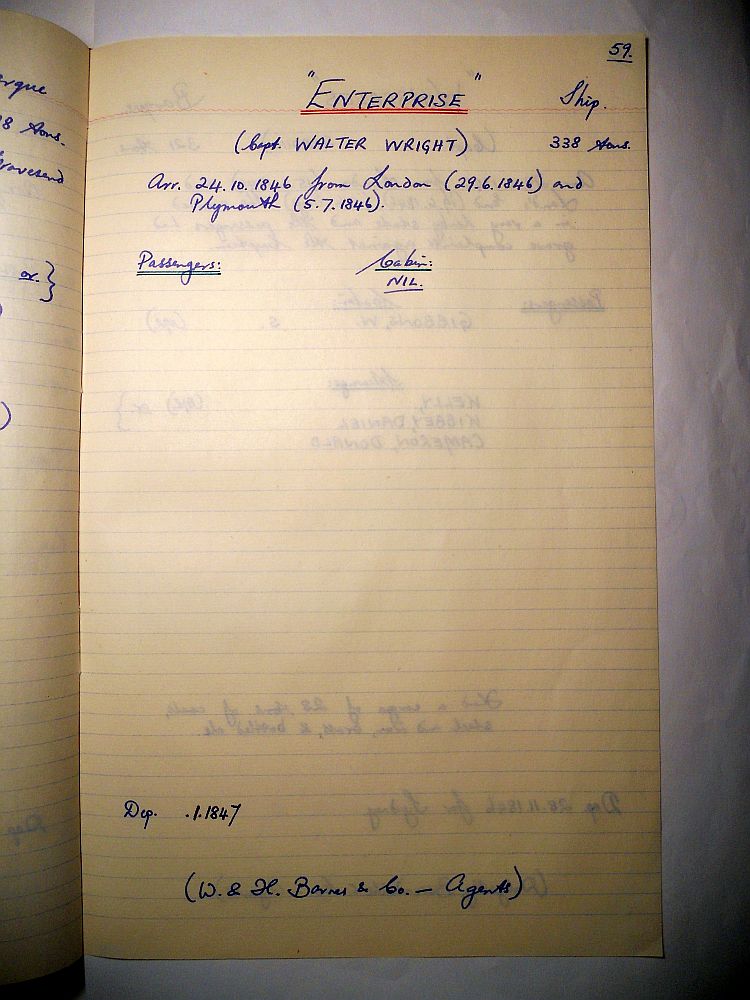 59.
"ENTERPRISE" Ship.
(Capt. WALTER WRIGHT) 338 tons.
Arr. 24.10.1846 from London (29.6.1846) and
Plymouth (5.7.1846).
Passengers: Cabin:
NIL.
Dep. .1.1847
(W. & H. Barnes & Co. — Agents)